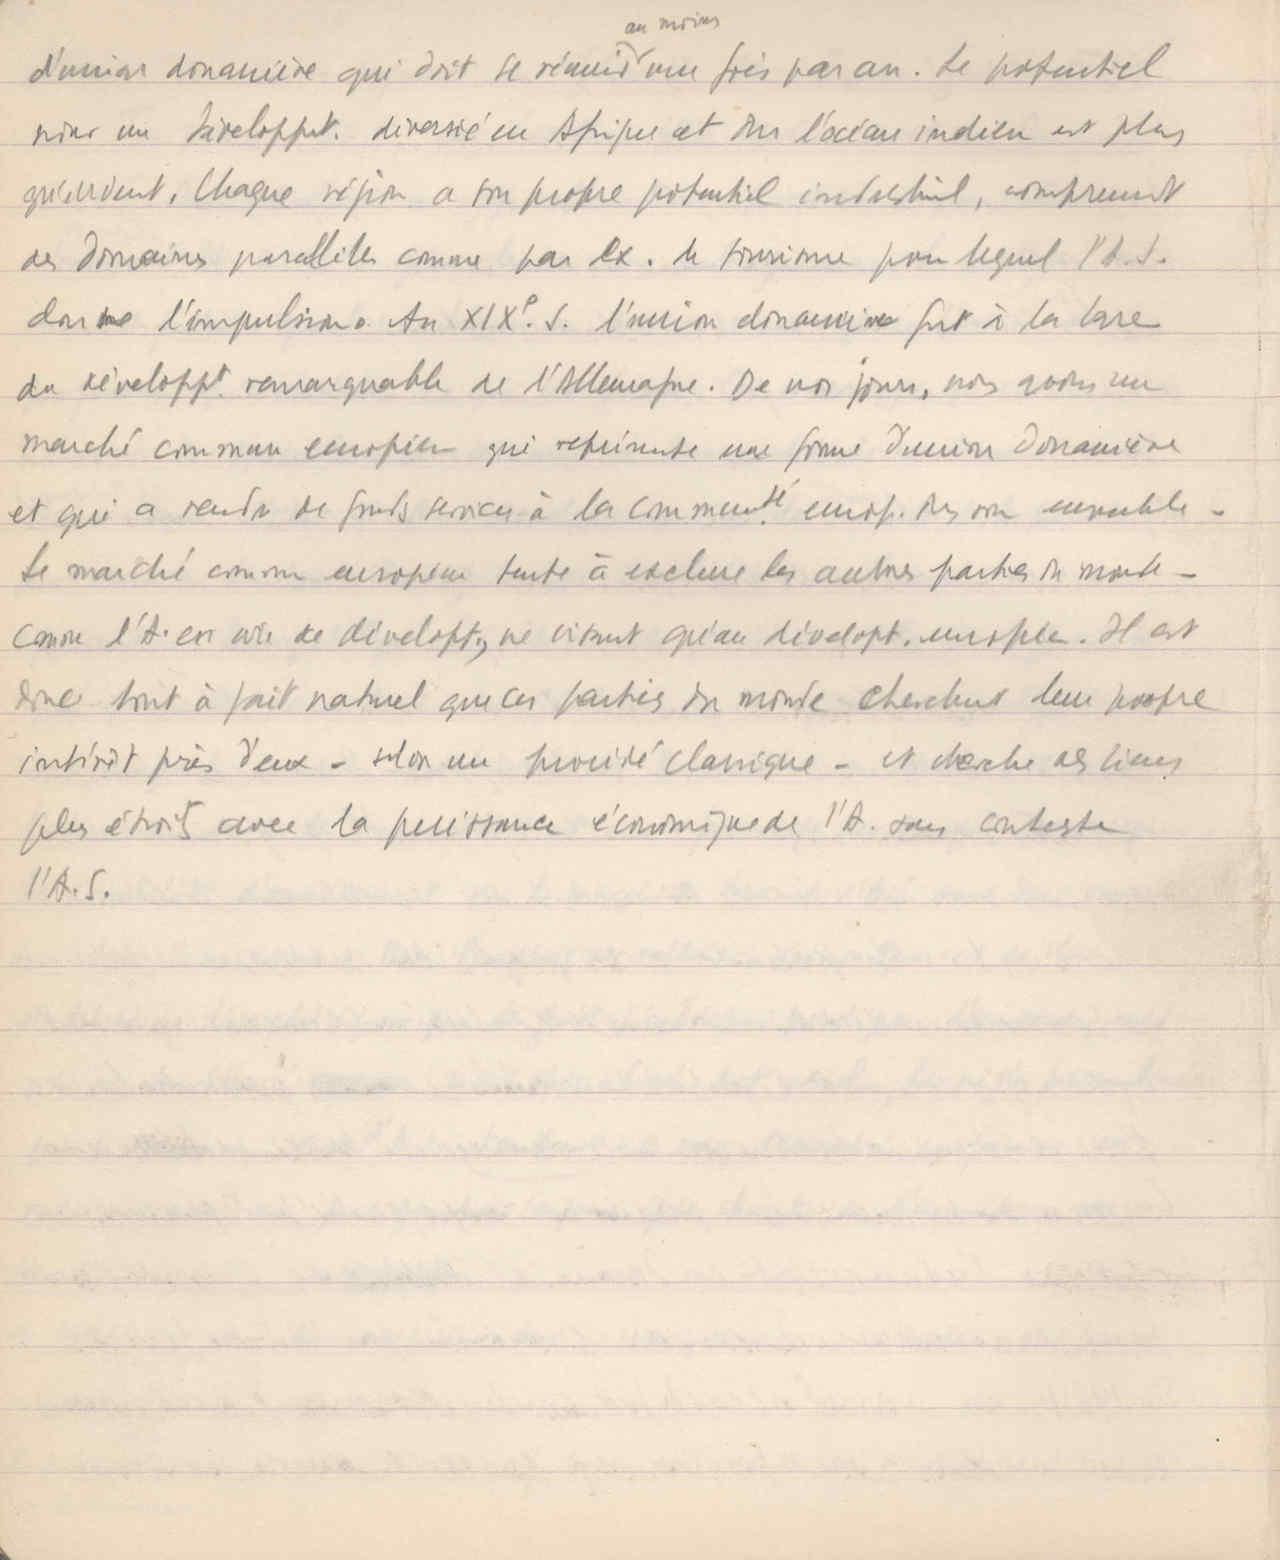 au moins
d'union douanière qui doit se réunir une fois par an. Le potentiel
pour un développt. diversifié en Afrique et ds l'océan indien est plus
qu'évident. Chaque région a son propre potentiel industriel, comprenant
des domaines parallèles comme par ex. le tourisme pour lequel l'A.S.
donne l'impulsion. Au XIXe. S. l'union douanière fut à la base
du développt. remarquable de l'Allemagne. De nos jours, nous avons un
marché commun européen qui représente une forme d'union douanière
et qui a rendu de grands services à la communté europ. ds son ensemble -
Le marché commun européen tente à exclure les autres parties du monde -
comme l'A. en voie de développt, ne visant qu'au dévelopt. europée. Il est
donc tout à fait naturel que ces parties du monde cherchent leur propre
intérêt près d'eux - selon un procédé classique - et cherche des liens
plus étroits avec la puissance économique de l'A. sans conteste
l'A.S.